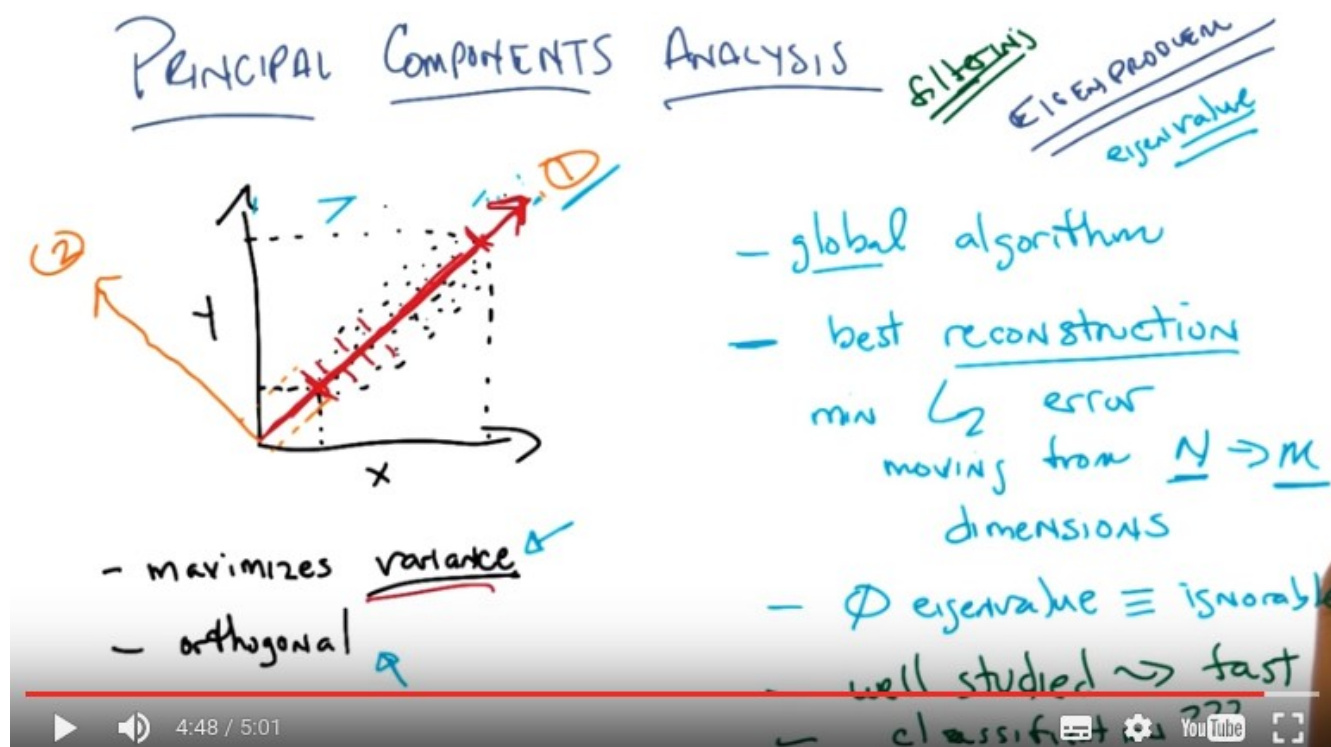 PRINCIPAL COMPONENTS ANALYSIS
filtering
EIGENPROBLEM
eigenvalue
1
2
Y
X
- maximizes variance
- orthogonal
- global algorithm
- best reconstruction
min error
moving from N → M
dimensions
- Ø eigenvalue ≡ ignorable
- well studied → fast
- classification ???
4:48 / 5:01
YouTube